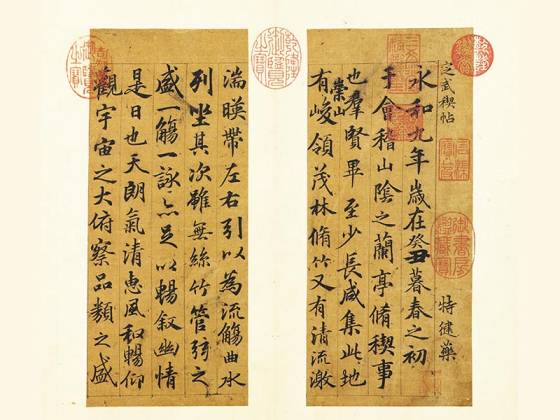 定武禊帖
特健藥
永和九年歲在癸丑暮春之初
于會稽山陰之蘭亭脩禊事
也羣賢畢至少長咸集此地
崇山
有峻領茂林脩竹又有清流激
乾隆御覽之寶
湍暎帶左右引以為流觴曲水
列坐其次雖無絲竹管弦之
盛一觴一詠亦足以暢叙幽情
是日也天朗氣清惠風和暢仰
觀宇宙之大俯察品類之盛